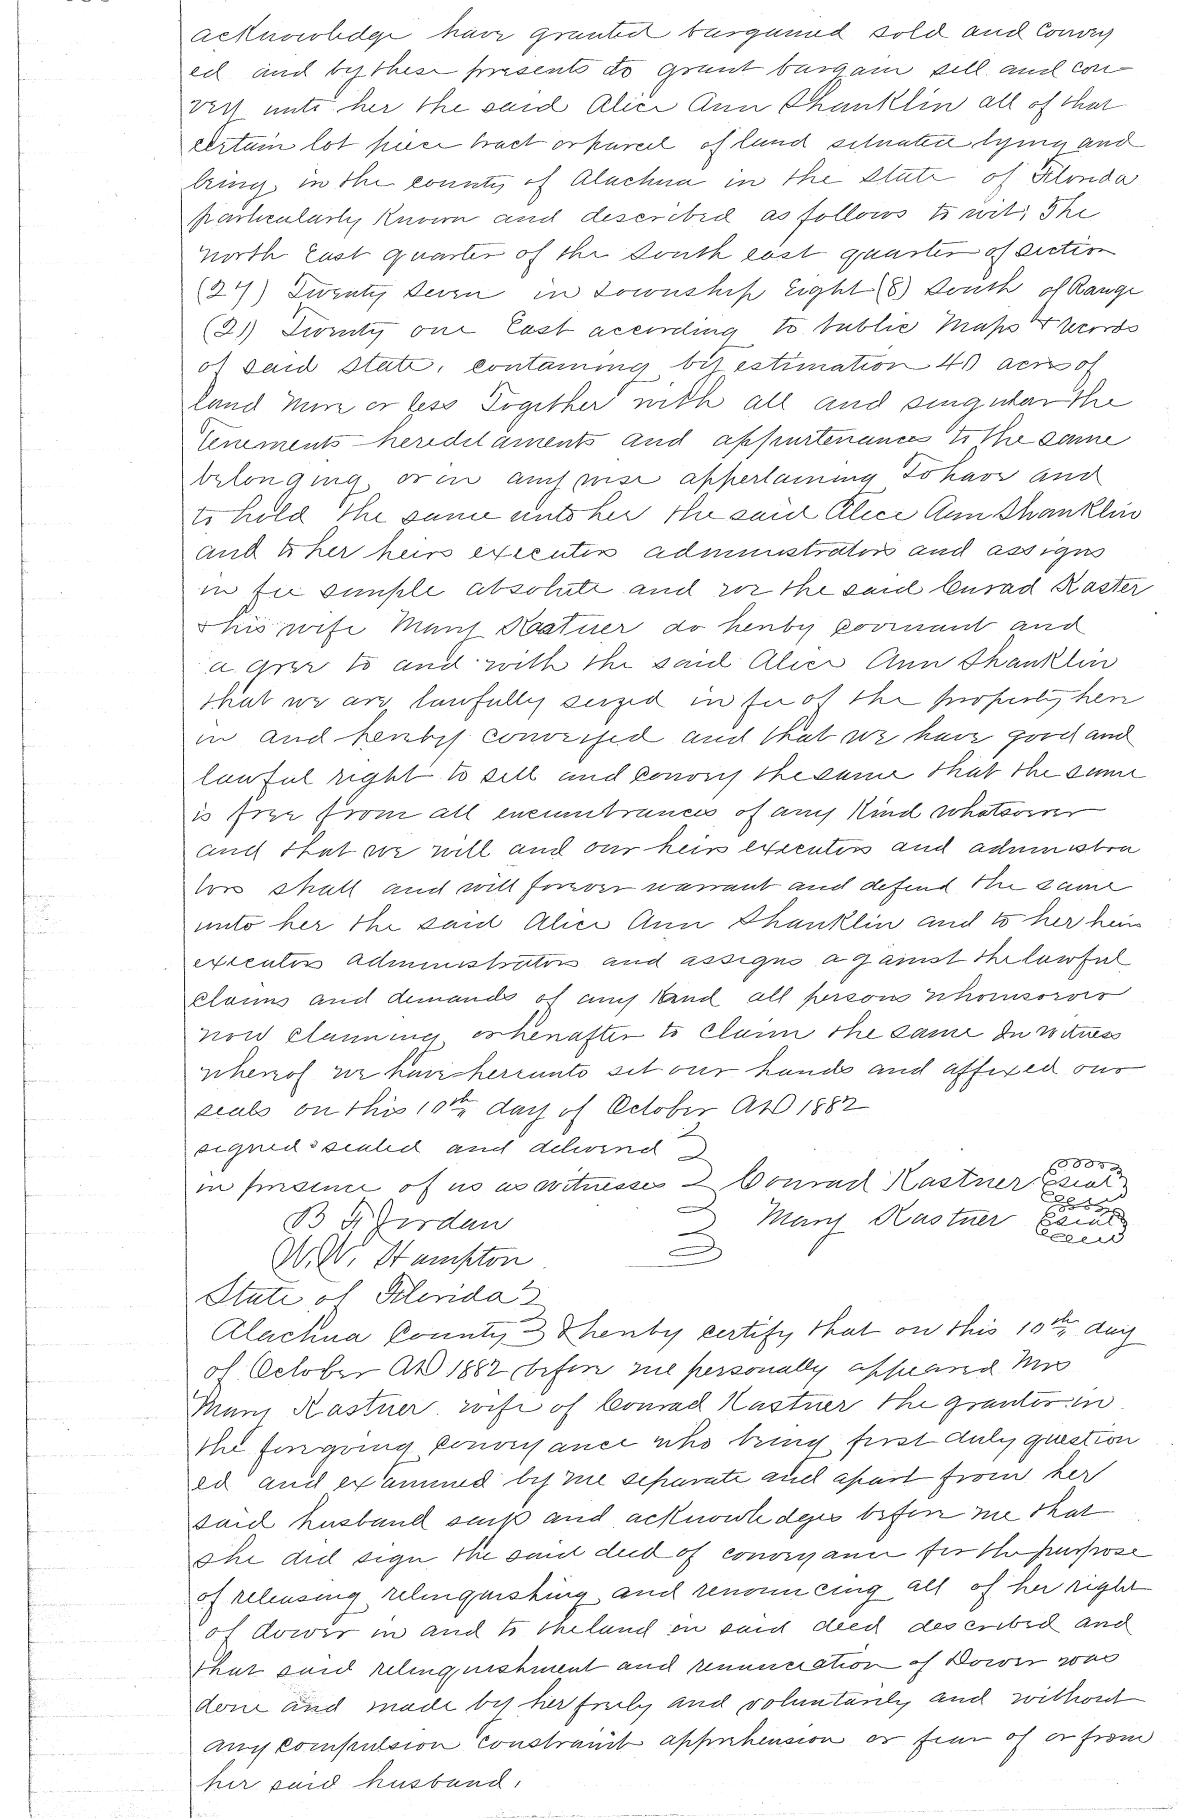 acknowledge have granted bargained sold and convey
ed and by these presents do grant bargain sell and con
vey unto her the said Alice Ann Shanklin all of that
certain lot piece tract or parcel of land situated lying and
being in the county of Alachua in the State of Florida
particularly Known and described as follows to wit; The
North East quarter of the South east quarter of section
(27) Twenty Seven in Township Eight (8) South of Range
(21) Twenty one East according to public Maps & records
of said State, containing by estimation 40 acres of
land more or less Together with all and singular the
tenements hereditaments and appurtenances to the same
belonging or in any wise appertaining To have and
to hold the same unto her the said Alice Ann Shanklin
and to her heirs executors administrators and assigns
in fee simple absolute and we the said Curad Kaster
& his wife Mary Kastner do hereby covenant and
agree to and with the said Alice Ann Shanklin
that we are lawfully seized in fee of the property here
in and hereby conveyed and that we have good and
lawful right to sell and convey the same that the same
is free from all encumbrances of any Kind whatsoever
and that we will and our heirs executors and administra
tors shall and will forever warrant and defend the same
unto her the said Alice Ann Shanklin and to her heirs
executors administrators and assigns against the lawful
claims and demands of any Kand all persons whomsoever
now claiming or hereafter to claim the same In witness
whereof we have hereunto set our hands and affixed our
seals on this 10th day of October AD 1882
signed sealed and delivered
in presence of us as witnesses Conrad Kastner seal
B F Jordan Mary Kastner seal
W. W. Hampton
State of Florida
Alachua County I hereby certify that on this 10th day
of October AD 1882 before me personally appeared Mrs
Mary Kastner wife of Conrad Kastner the grantor in
the foregoing conveyance who being first duly question
ed and examined by me separate and apart from her
said husband says and acknowledges before me that
she did sign the said deed of conveyance for the purpose
of releasing relinquishing and renouncing all of her right
of dower in and to the land in said deed described and
that said relinquishment and renunciation of Dower was
done and made by her freely and voluntarily and without
any compulsion constraint apprehension or fear of or from
her said husband.